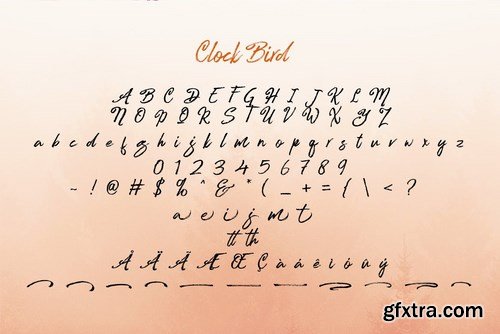 Clock Bird
A B C D E F G H I J K L M
N O P Q R S T U V W X Y Z
a b c d e f g h i j k l m n o p q r s t u v w x y z
0 1 2 3 4 5 6 7 8 9
~ ! @ # $ % ^ & * ( _ + = { \ < ?
a e i j m t
tt th
À Ä Ã Æ Œ Ç à á ê ì ó ù ÿ
gfxtra.com